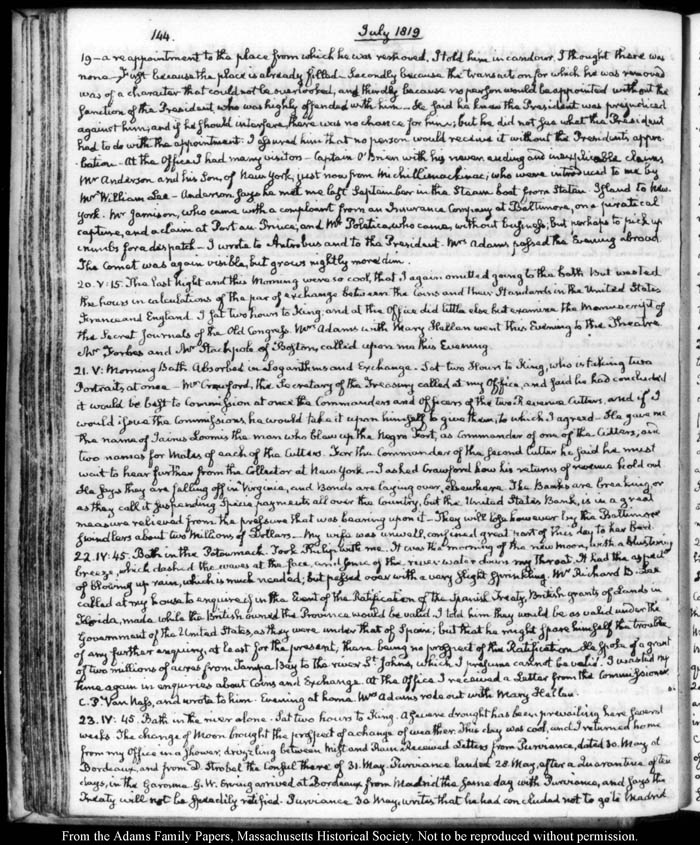 144.
July 1819
19 — a reappointment to the place from which he was removed. I told him in candour, I thought there was
none — First because the place is already filled — Secondly because the transaction for which he was removed
was of a character that could not be overlooked, and thirdly because no person would be appointed without the
sanction of the President who was highly offended with him. — He said he knew the President was prejudiced
against him, and if he should interfere, there was no chance for him; but he did not see what the President
had to do with the appointment. I assured him that no person would receive it without the President's appro-
bation — At the Office I had many visitors — Captain O'Brien with his never ending and inexplicable claims
Mr Anderson and his Son, of New York, just now from Michillimackinac; who were introduced to me by
Mr William Lee — Anderson says he met me last September in the Steam boat from Staten Island to New
York. Mr Jamison, who came with a complaint from an Insurance Company at Baltimore, on a piratical
capture, and a claim at Port au Prince, and Mr Poletica who came, without business, but perhaps to pick up
crumbs for a despatch — I wrote to Antrobus and to the President. Mrs Adams passed the Evening abroad
The Comet was again visible, but grows nightly more dim.
20. V:15. The last Night and this Morning were so cool, that I again omitted going to the bath But wasted
the hours in calculations of the par of exchange between the Coins and their Standards in the United States
France and England. I sat two hours to King; and at the Office did little else but examine the Manuscript of
the Secret Journals of the Old Congress. Mrs Adams with Mary Hellen went this Evening to the Theatre
Mr Forbes and Mr Stackpole of Boston, called upon me this Evening
21. V: Morning Bath. Absorbed in Logarithms and Exchange. Sat two Hours to King, who is taking two
Portraits at once — Mr Crawford, the Secretary of the Treasury called at my Office, and said he had concluded
it would be best to Commission at once the Commanders and Officers of the two Revenue Cutters, and if I
would issue the Commissions, he would take it upon himself to give them; to which I agreed — He gave me
the name of Jairus Loomis the man who blew up the Negro Fort, as Commander of one of the Cutters; and
two names for Mates of each of the Cutters. For the Commander of the second Cutter he said he must
wait to hear further from the Collector at New York. — I asked Crawford how his returns of revenue hold out
He says they are falling off in Virginia, and Bonds are laying over elsewhere. The Banks are breaking, or
as they call it suspending Specie payments all over the Country, but the United States Bank, is in a great
measure relieved from the pressure that was bearing upon it — They will lose however by the Baltimore
Swindlers about two Millions of Dollars — My wife was unwell, confined great part of this day to her bed.
22. IV:45. Bath in the Potowmack. Took Philip with me. It was the morning of the new moon, with a blustering
breeze, which dashed the waves at the face, and some of the river water down my throat. It had the aspect
of blowing up rain, which is much needed; but passed over with a very slight sprinkling. Mr Richard B. Lee
called at my house to enquire if in the Event of the Ratification of the Spanish Treaty, British grants of lands in
Florida, made while the British owned the Province would be valid. I told him they would be as valid under the
Government of the United States, as they were under that of Spain; but that he might spare himself the trouble
of any further enquiry, at least for the present, there being no prospect of the Ratification. He spoke of a grant
of two millions of acres from Tampa Bay to the river St Johns, which I presume cannot be valid. I wasted my
time again in enquiries about Coins and Exchange. At the Office I received a Letter from the Commissioner
C. P. Van Ness, and wrote to him. Evening at home. Mrs Adams rode out with Mary Hellen.
23. IV:45. Bath in the river alone. Sat two hours to King. A severe drought has been prevailing here several
weeks. The change of Moon brought the prospect of a change of weather. This day was cool, and I returned home
from my Office in a shower, drizzling between Mist and Rain. Received Letters from Purviance, dated 30. May, at
Bordeaux, and from D. Strobel the Consul there of 31. May. Purviance landed 28 May, after a Quarantine of ten
days, in the Garonne. G. W. Erving arrived at Bordeaux from Madrid the same day with Purviance, and says the
Treaty will not be speedily ratified. Purviance 30 May, writes that he had concluded not to go to Madrid
From the Adams Family Papers, Massachusetts Historical Society. Not to be reproduced without permission.